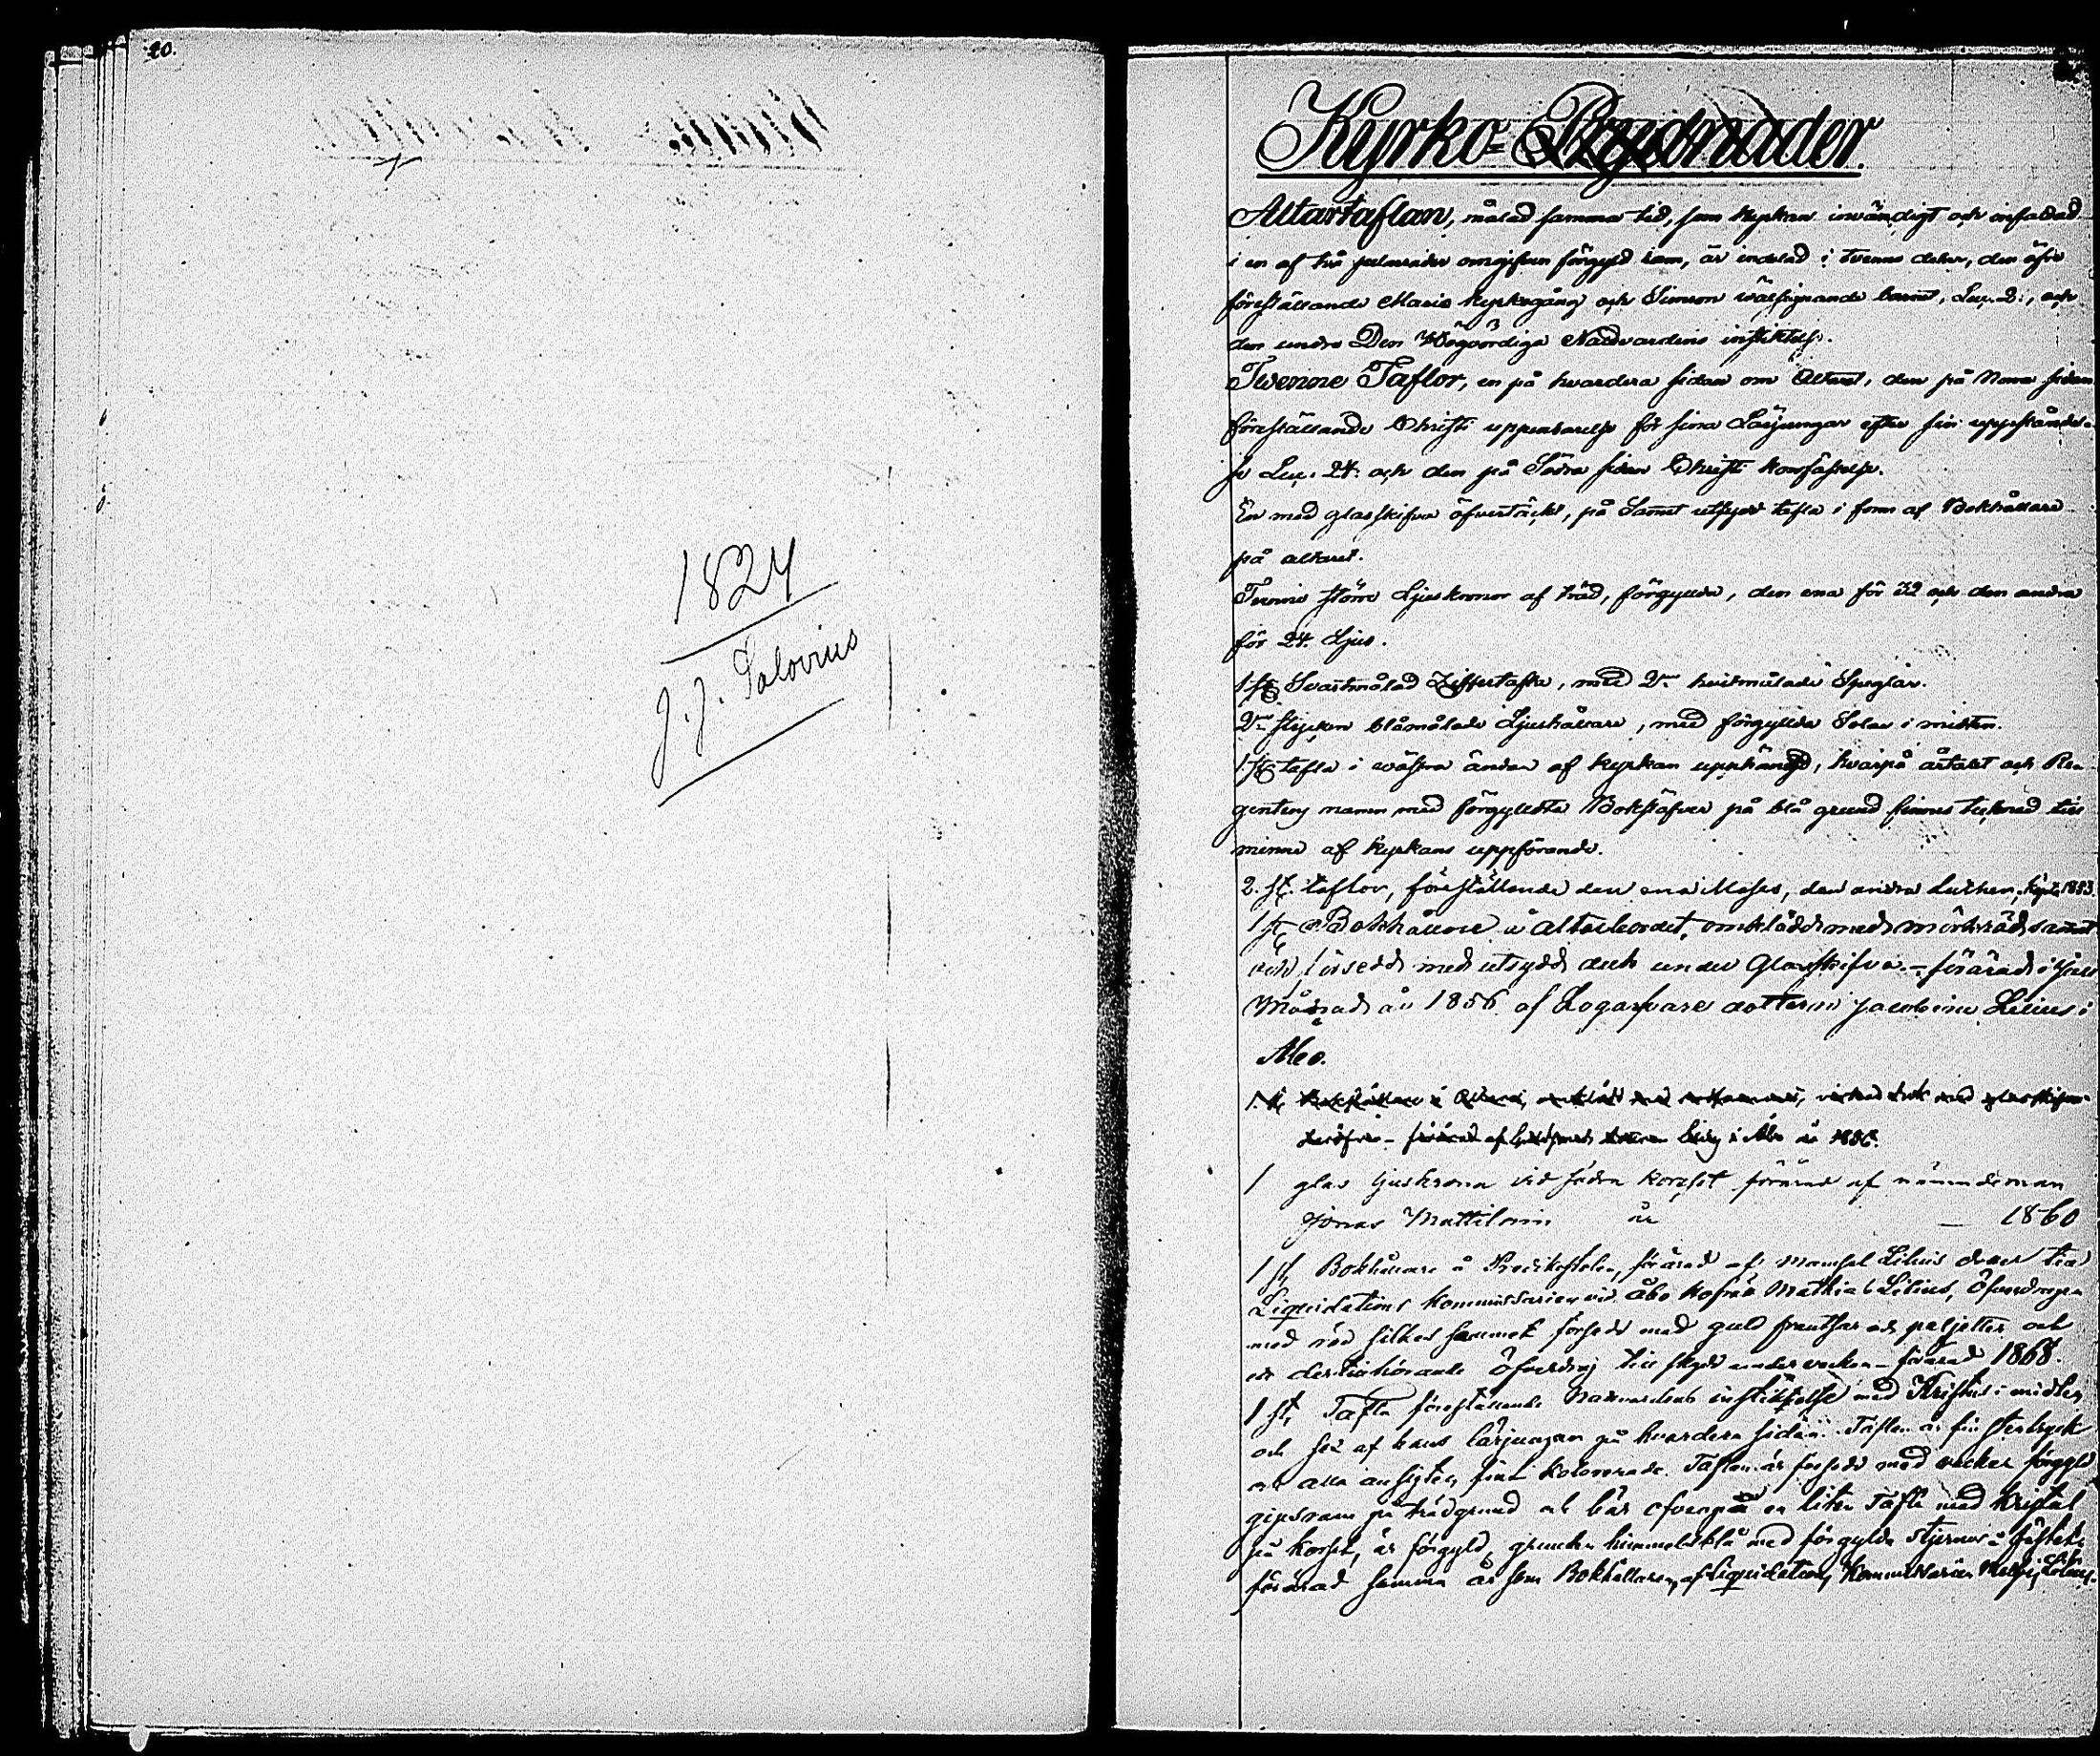 40.
1824
J.J. Salovius
Kyrko-Prydnader.
Altartaflan, målad samma tid, som kyrkan invändigt och infattad
i en af två pelarader omgifven förgyld ram, är indelad i tvenne delar, den öfre
föreställande Mariæ kyrkogång och Simeon välsignande barnet, Luc. 2:, och
den undre Den Högvördiga Nattvardens instiktelse.
Twenne Taflor, en på hvardera sidan om Altaret, den på Norra sidan
föreställande Christi uppenbarelse för sina Lärjungar efter sin uppståndel-
se Luc. 24: och den på Södra sidan Christi korsfästelse.
En med glasskifva öfvertäckt, på Samet utsydd tafla i form af Bokhållare
på altaret.
Tvenne större Ljuskronor af träd, förgyllda, den ena för 32 och den andra
för 24. Ljus.
1 st Svartmålad Ziffertafla, med 2ne hvitmålade Speglar.
2ne stycken blåmålade Ljushållare, med förgyllda Solar i midten.
1 st tafla i västra ändan af kyrkan upphängd, hvarpå årtalet och Re-
gentens namn med förgyllda Bokstäfver på blå grund finnes tecknad till
minne af kyrkans uppförande.
2. st. taflor, föreställande den ena Moses, den andra Luther, köpta 1853.
1 st Bokhållare å altarbordet, omklädd med mörkröd samet
och försedd med utsydd duk under Glasskifva. – förärad i
Månad år 1856 af dottern Jacobina Lilius i
Åbo.
1 st Bokhållare å Altaret, omklädd med med glasskifva
förärad af i Åbo år 1856.
1 glas ljuskrona vid södra korset förärad af nämndeman
Jonas Mattilanin år — 1860
1 st Bokhållare å Predikstolen, förärad af Mamsel Lilius dotter till
Liquidations kommissarien vid Åbo Hofrätt Mathias Lilius, Öfverdragen
med röd silkes sammet försedd med guld frantsar och paljetter och
ett dertillhörande Öfverdrag till skydd under veckan – förärad 1868.
1 st Tafla föreställande Nattvardens instiktelse med Kristus i midten
och sex af hans lärjungar på hvardera sidan. Taflan är fin stentryck
och alla ansigten fint kolorerade. Taflan är försedd med vacker förgyld
gipsram på trädgrund och bär ofvanpå en liten Tafla med Kristus
på korset, är förgyld, grunden himmelsblå med förgylda stjernor å fästet.
förärad samma år som Bokhållaren, af Liquidations Kommissarien Lilius.